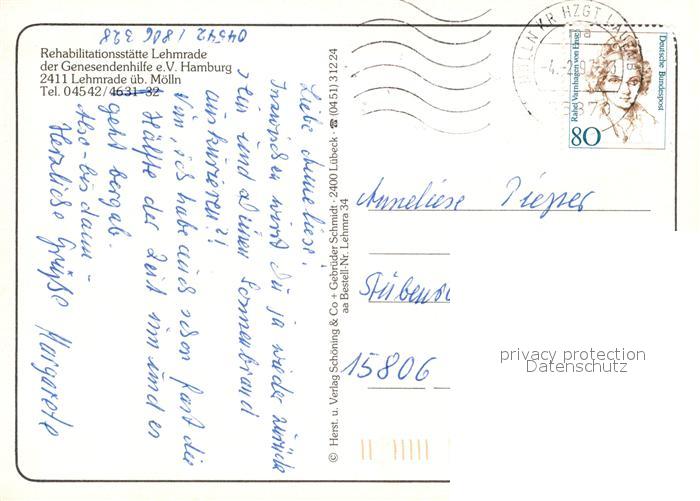 04542 / 806 328
Rehabilitationsstätte Lehmrade
der Genesendenhilfe e.V. Hamburg
2411 Lehmrade üb. Mölln
Tel. 04542/4631-32
Liebe Anneliese!
Inzwischen wirst Du ja wieder zurück
sein und Deinen Sonnenbrand
auskurieren?!
Nun, ich habe auch schon fast die
Hälfte der Zeit um und es
geht bergab.
Also - bis dann -
Herzliche Grüße Margarete
© Herst. u. Verlag Schöning & Co + Gebrüder Schmidt · 2400 Lübeck · ☎ (04 51) 3 12 24
aa Bestell-Nr. Lehmra 34
MÖLLN KR HZGT LAUENB
Rahel Varnhagen von Ense
Deutsche Bundespost
80
Anneliese
15806
privacy protection
Datenschutz